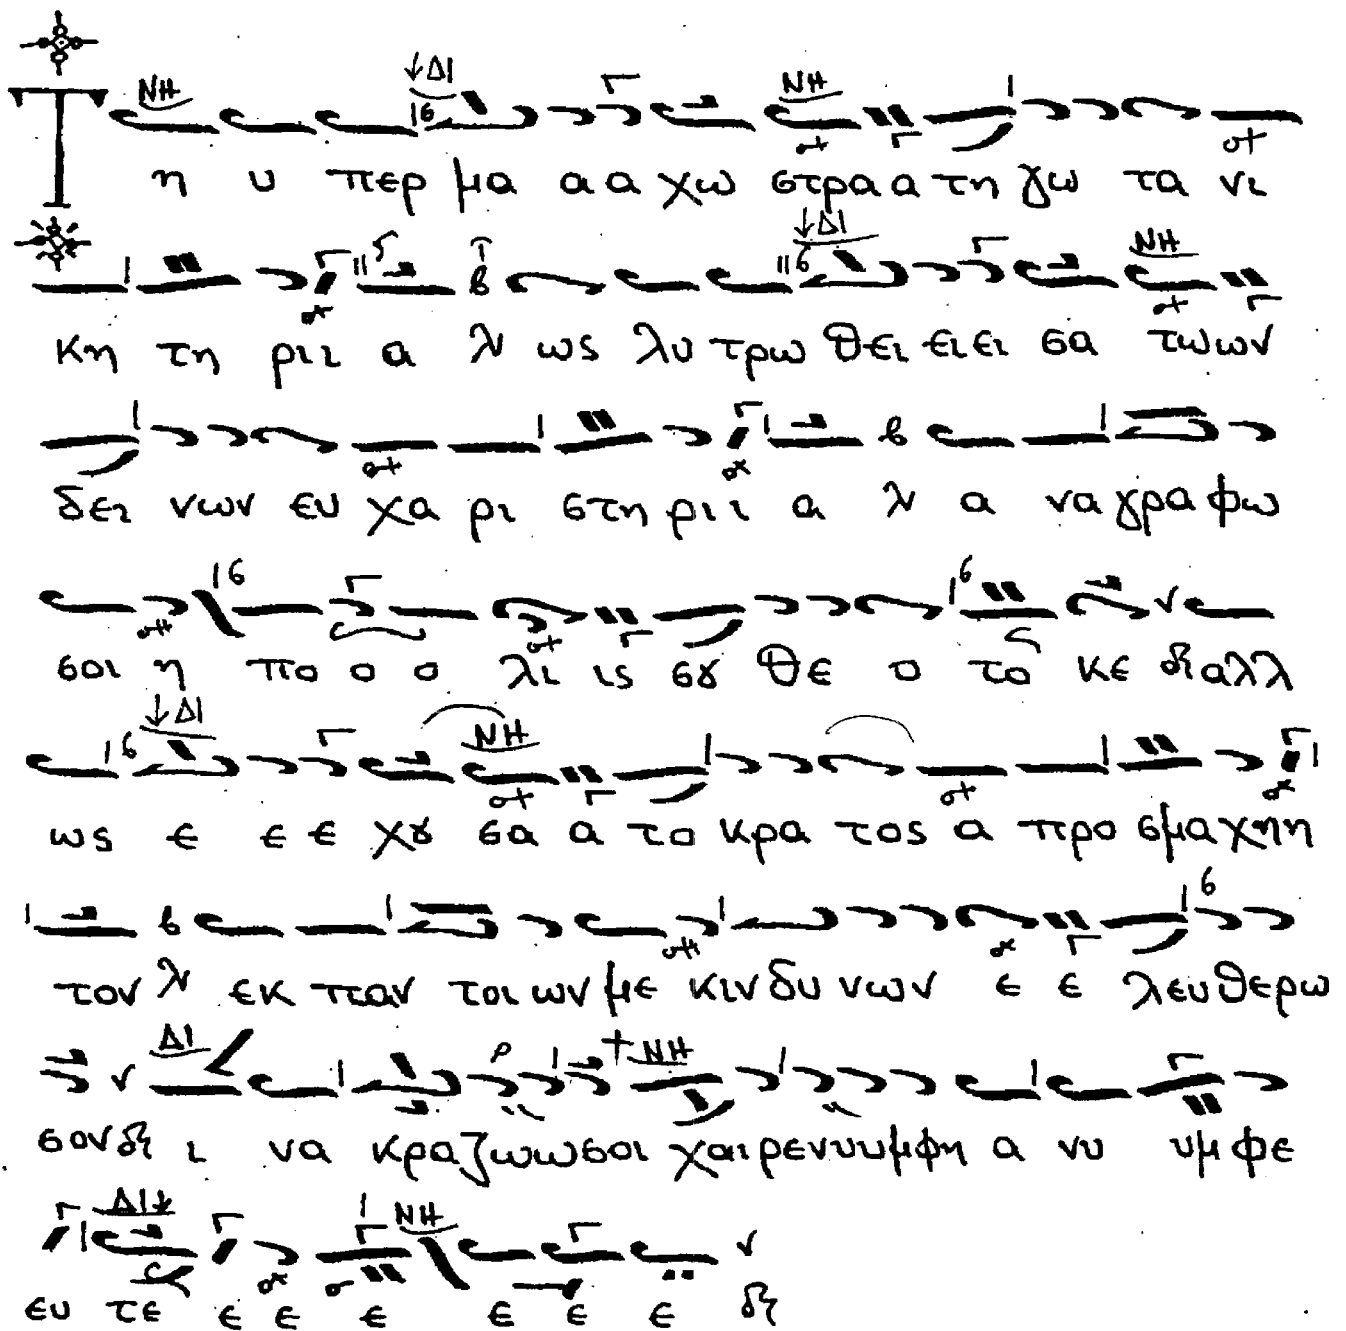 Τη υ περ μα α α χω στρα α τη γω τα νι
κη τη ρι ι α ως λυ τρω θει ει ει σα τω ων
δει νων ευ χα ρι στη ρι ι α α να γρα φω
σοι η πο ο ο λι ις σȣ θε ο το κε αλλ
ως ε ε ε χȣ σα α το κρα τος α προ σμα χη η
τον εκ παν τοι ων με κιν δυ νων ε ε λευ θε ρω
σον ι να κρα ζω ω σοι χαι ρε νυ υμ φη α νυ υμ φε
ευ τε ε ε ε ε ε ε